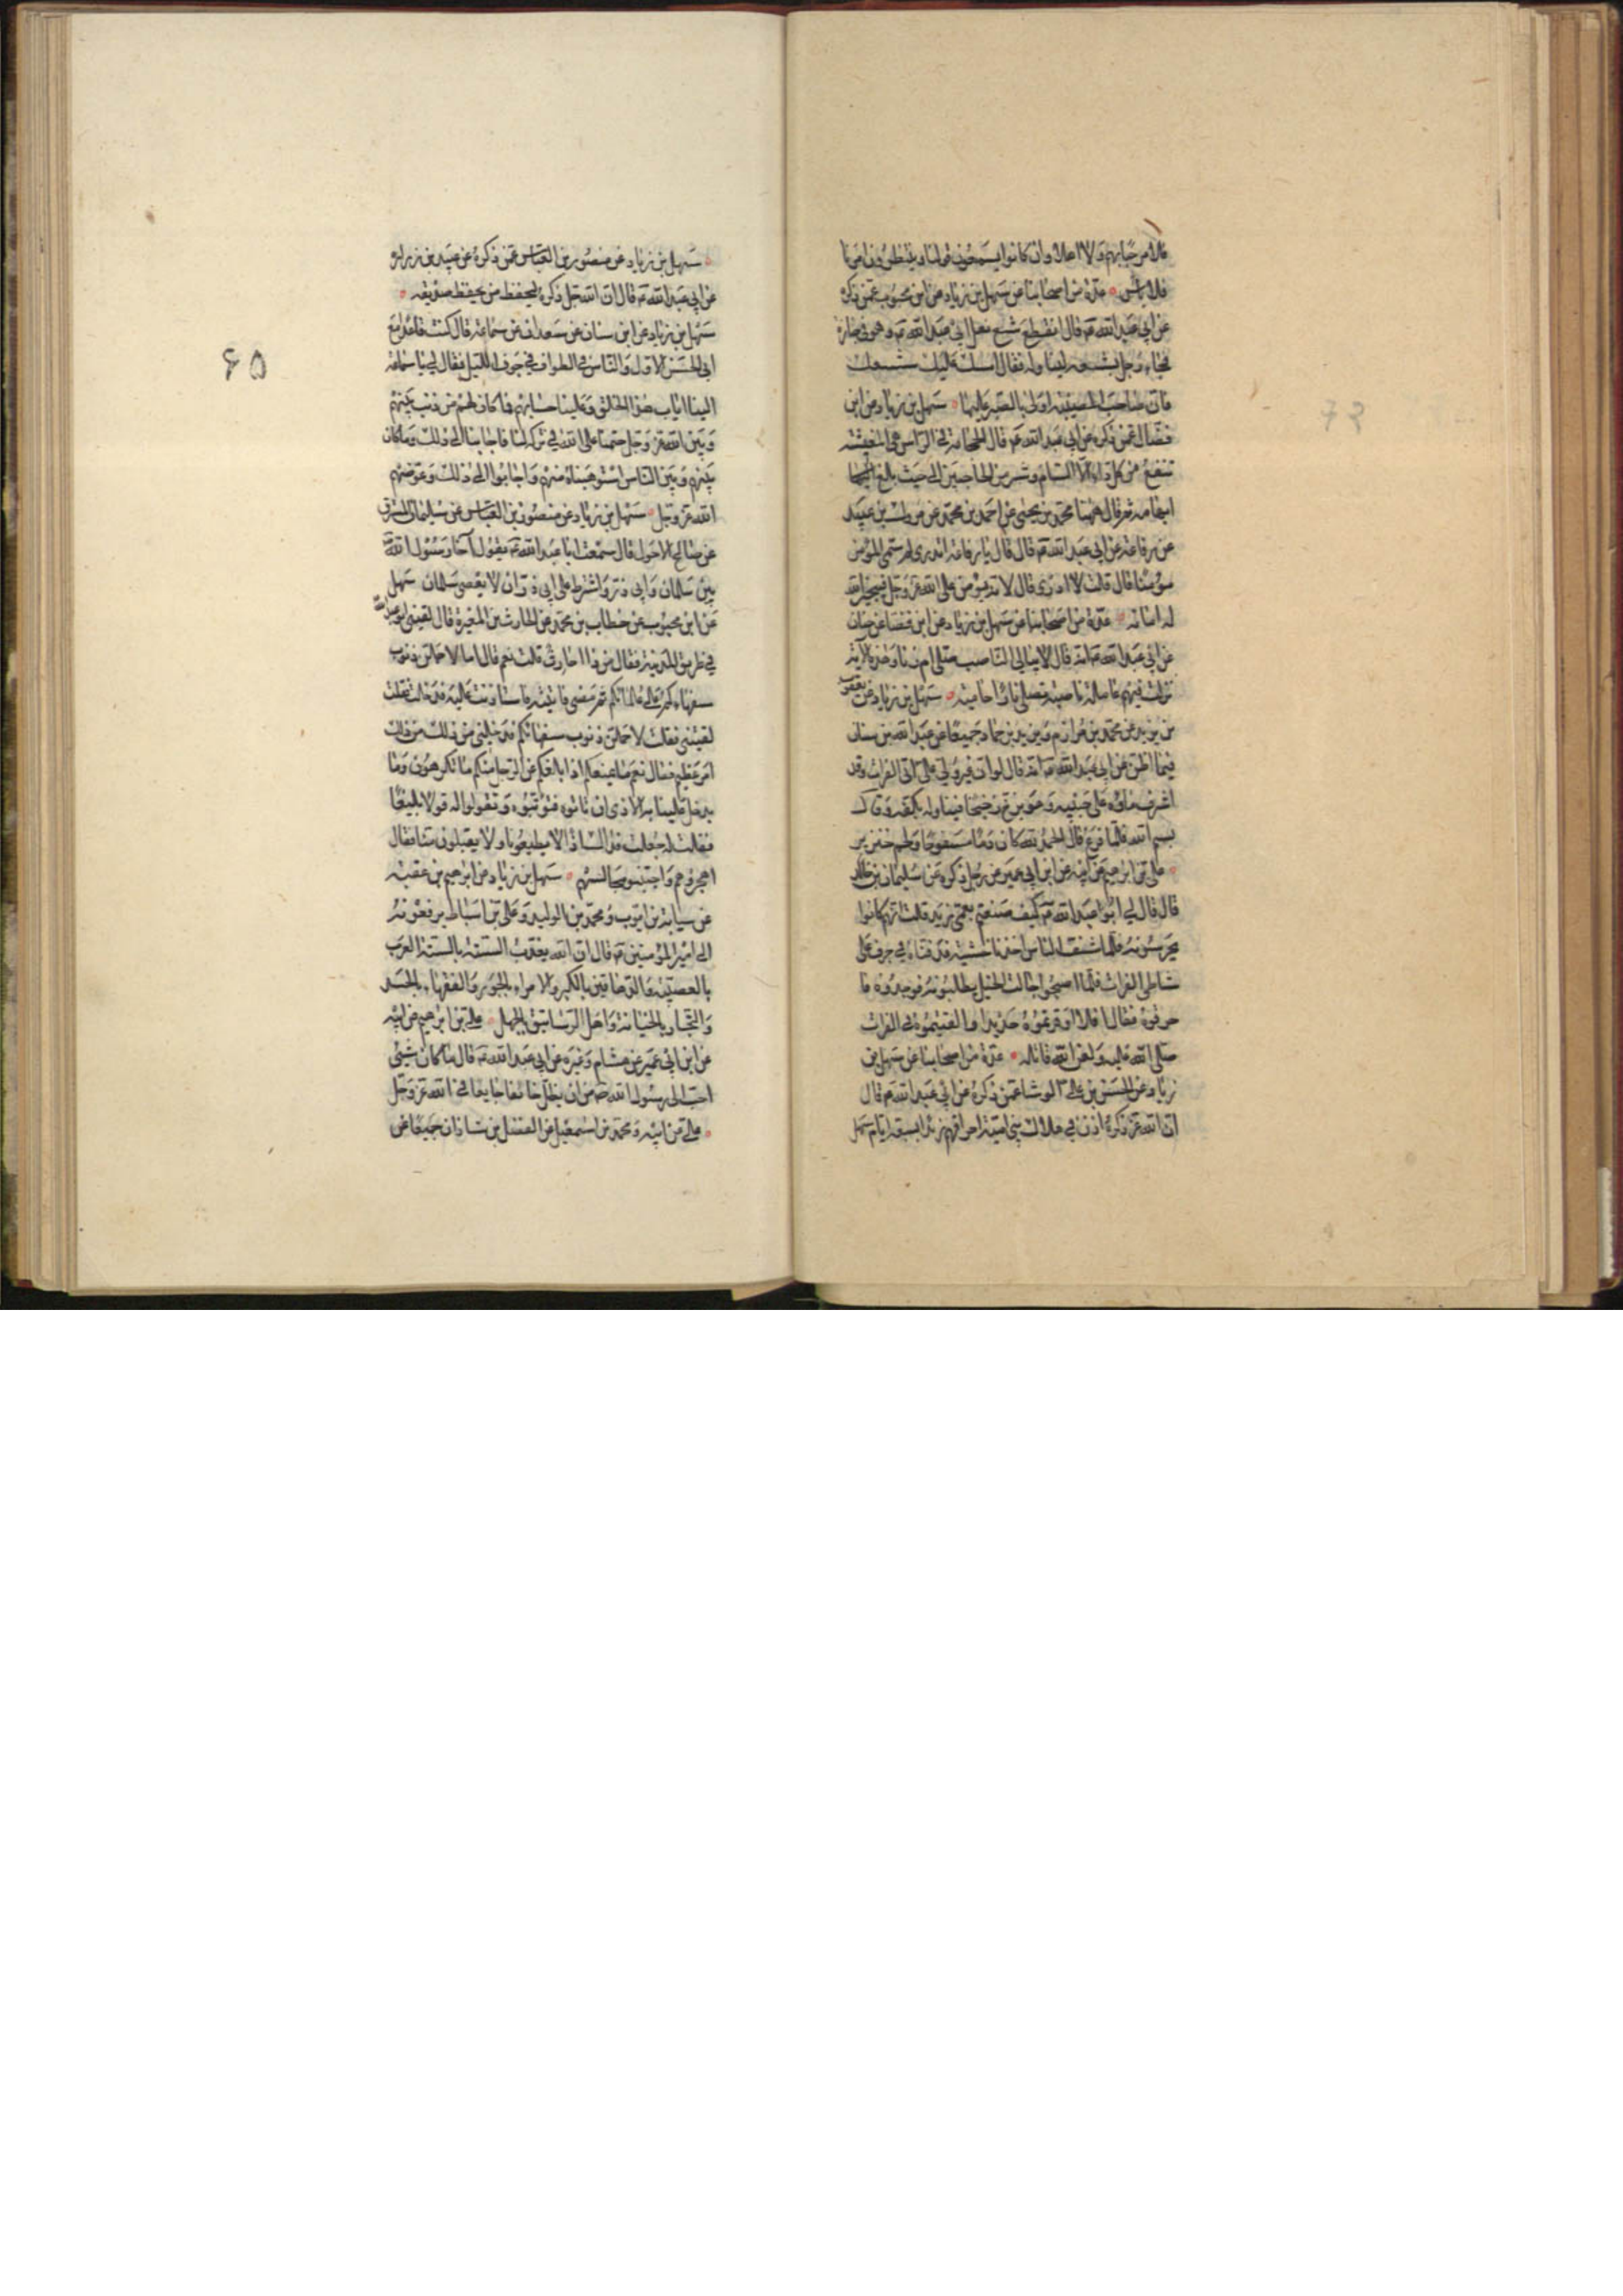 فلا مرحبا بهم ولا اهلا وان كانوا يسمعون قولنا وينتظرون امرنا
فلا باس عدة من اصحابنا عن سهل بن زياد عن ابن محبوب عمن ذكره
عن ابي عبد الله ع قال انقطع شسع نعل ابي عبد الله ع وهو في جنازة
فجاء رجل بشسعه ليناوله فقال امسك عليك شسعك
فان صاحب المصيبة اولى بالصبر عليها سهل بن زياد عن ابن
فضال عمن ذكره عن ابي عبد الله ع قال الحجامة في الراس هي المغيثة
تنفع من كل داء الا السام وشبر من الحاجبين الى حيث بلغ
ابهامه ثم قال ههنا محمد بن يحيى عن احمد بن محمد عن مروك بن عبيد
عن رفاعة عن ابي عبد الله ع قال قال يا رفاعة اتدري لم سمي المؤمن
مؤمنا قال قلت لا ادري قال لانه يؤمن على الله عز وجل فيجيز الله
له امانه عدة من اصحابنا عن سهل بن زياد عن ابن فضال عن حنان
عن ابي عبد الله ع انه قال لا يبالي الناصب صلى ام زنا وهذه الآية
نزلت فيهم عاملة ناصبة تصلى نارا حامية سهل بن زياد عن يعقوب
بن يزيد عن محمد بن مرازم ويزيد بن حماد جميعا عن عبد الله بن سنان
فيما اظن عن ابي عبد الله ع انه قال لو ان غير ولي علي اتى الفرات وقد
اشرف ماؤه على جنبيه وهو يزخ زخيخا فيناوله بكفه وقال
بسم الله فلما فرغ قال الحمد لله كان دما مسفوحا ولحم خنزير
علي بن ابرهيم عن ابيه عن ابن ابي عمير عن رجل ذكره عن سليمان بن خالد
قال قال لي ابو عبد الله ع كيف صنعتم بعمي زيد قلت انهم كانوا
يحرسونه فلما شف الناس اخذنا خشبته فدفناه في جرف على
شاطى الفرات فلما اصبحوا جالت الخيل يطلبونه فوجدوه فا
حرقوه فقال افلا اوقرتموه حديدا والقيتموه في الفرات
صلى الله عليه ولعن الله قاتله عدة من اصحابنا عن سهل بن
زياد عن الحسن بن علي الوشا عمن ذكره عن ابي عبد الله ع قال
ان الله عز ذكره اذن في هلاك بني امية بعد احراقهم زيدا بسبعة ايام سهل
سهل بن زياد عن منصور بن العباس عمن ذكره عن عبيد بن زرارة
عن ابي عبد الله ع قال ان الله جل ذكره ليحفظ من يحفظ صديقه
سهل بن زياد عن ابن سنان عن سعدان عن سماعة قال كنت قاعدا مع
ابي الحسن الاول والناس في الطواف في جوف الليل فقال لي يا سماعة
الينا اياب هذا الخلق وعلينا حسابهم فما كان لهم من ذنب بينهم
وبين الله عز وجل حتمنا على الله في تركه لنا فاجابنا الى ذلك وما كان
بينهم وبين الناس استوهبناه منهم واجابوا الى ذلك وعوضهم
الله عز وجل سهل بن زياد عن منصور بن العباس عن سليمان المسترق
عن صالح الاحول قال سمعت ابا عبد الله ع يقول آخا رسول الله ص
بين سلمان وابي ذر واشترط على ابي ذر ان لا يعصي سلمان سهل
عن ابن محبوب عن خطاب بن محمد عن الحارث بن المغيرة قال لقيني ابو عبد الله ع
في طريق المدينة فقال من ذا احارث قلت نعم قال اما لاحملن ذنوب
سفهاءكم على علمائكم ثم مضى فاتيته فاستاذنت عليه فدخلت فقلت
لقيتني فقلت لاحملن ذنوب سفهائكم فدخلني من ذلك
امر عظيم فقال نعم ما يمنعكم اذا بلغكم عن الرجل منكم ما تكرهون وما
يدخل علينا به الاذى ان تاتوه فتؤنبوه وتقولوا له قولا بليغا
فقلت له جعلت فداك اذا لا يطيعونا ولا يقبلون منا فقال
اهجروهم واجتنبوا مجالسهم سهل بن زياد عن ابرهيم بن عقبة
عن سيابة بن ايوب ومحمد بن الوليد وعلي بن اسباط يرفعونه
الى امير المؤمنين ع قال ان الله يعذب الستة بالستة العرب
بالعصبية والدهاقين بالكبر والامراء بالجور والفقهاء بالحسد
والتجار بالخيانة واهل الرساتيق بالجهل علي بن ابرهيم عن ابيه
عن ابن ابي عمير عن هشام وغيره عن ابي عبد الله ع قال ما كان شيئ
احب الى رسول الله ص من ان يظل خائفا جايعا في الله عز وجل
علي عن ابيه ومحمد بن اسمعيل عن الفضل بن شاذان جميعا عن
۶۵